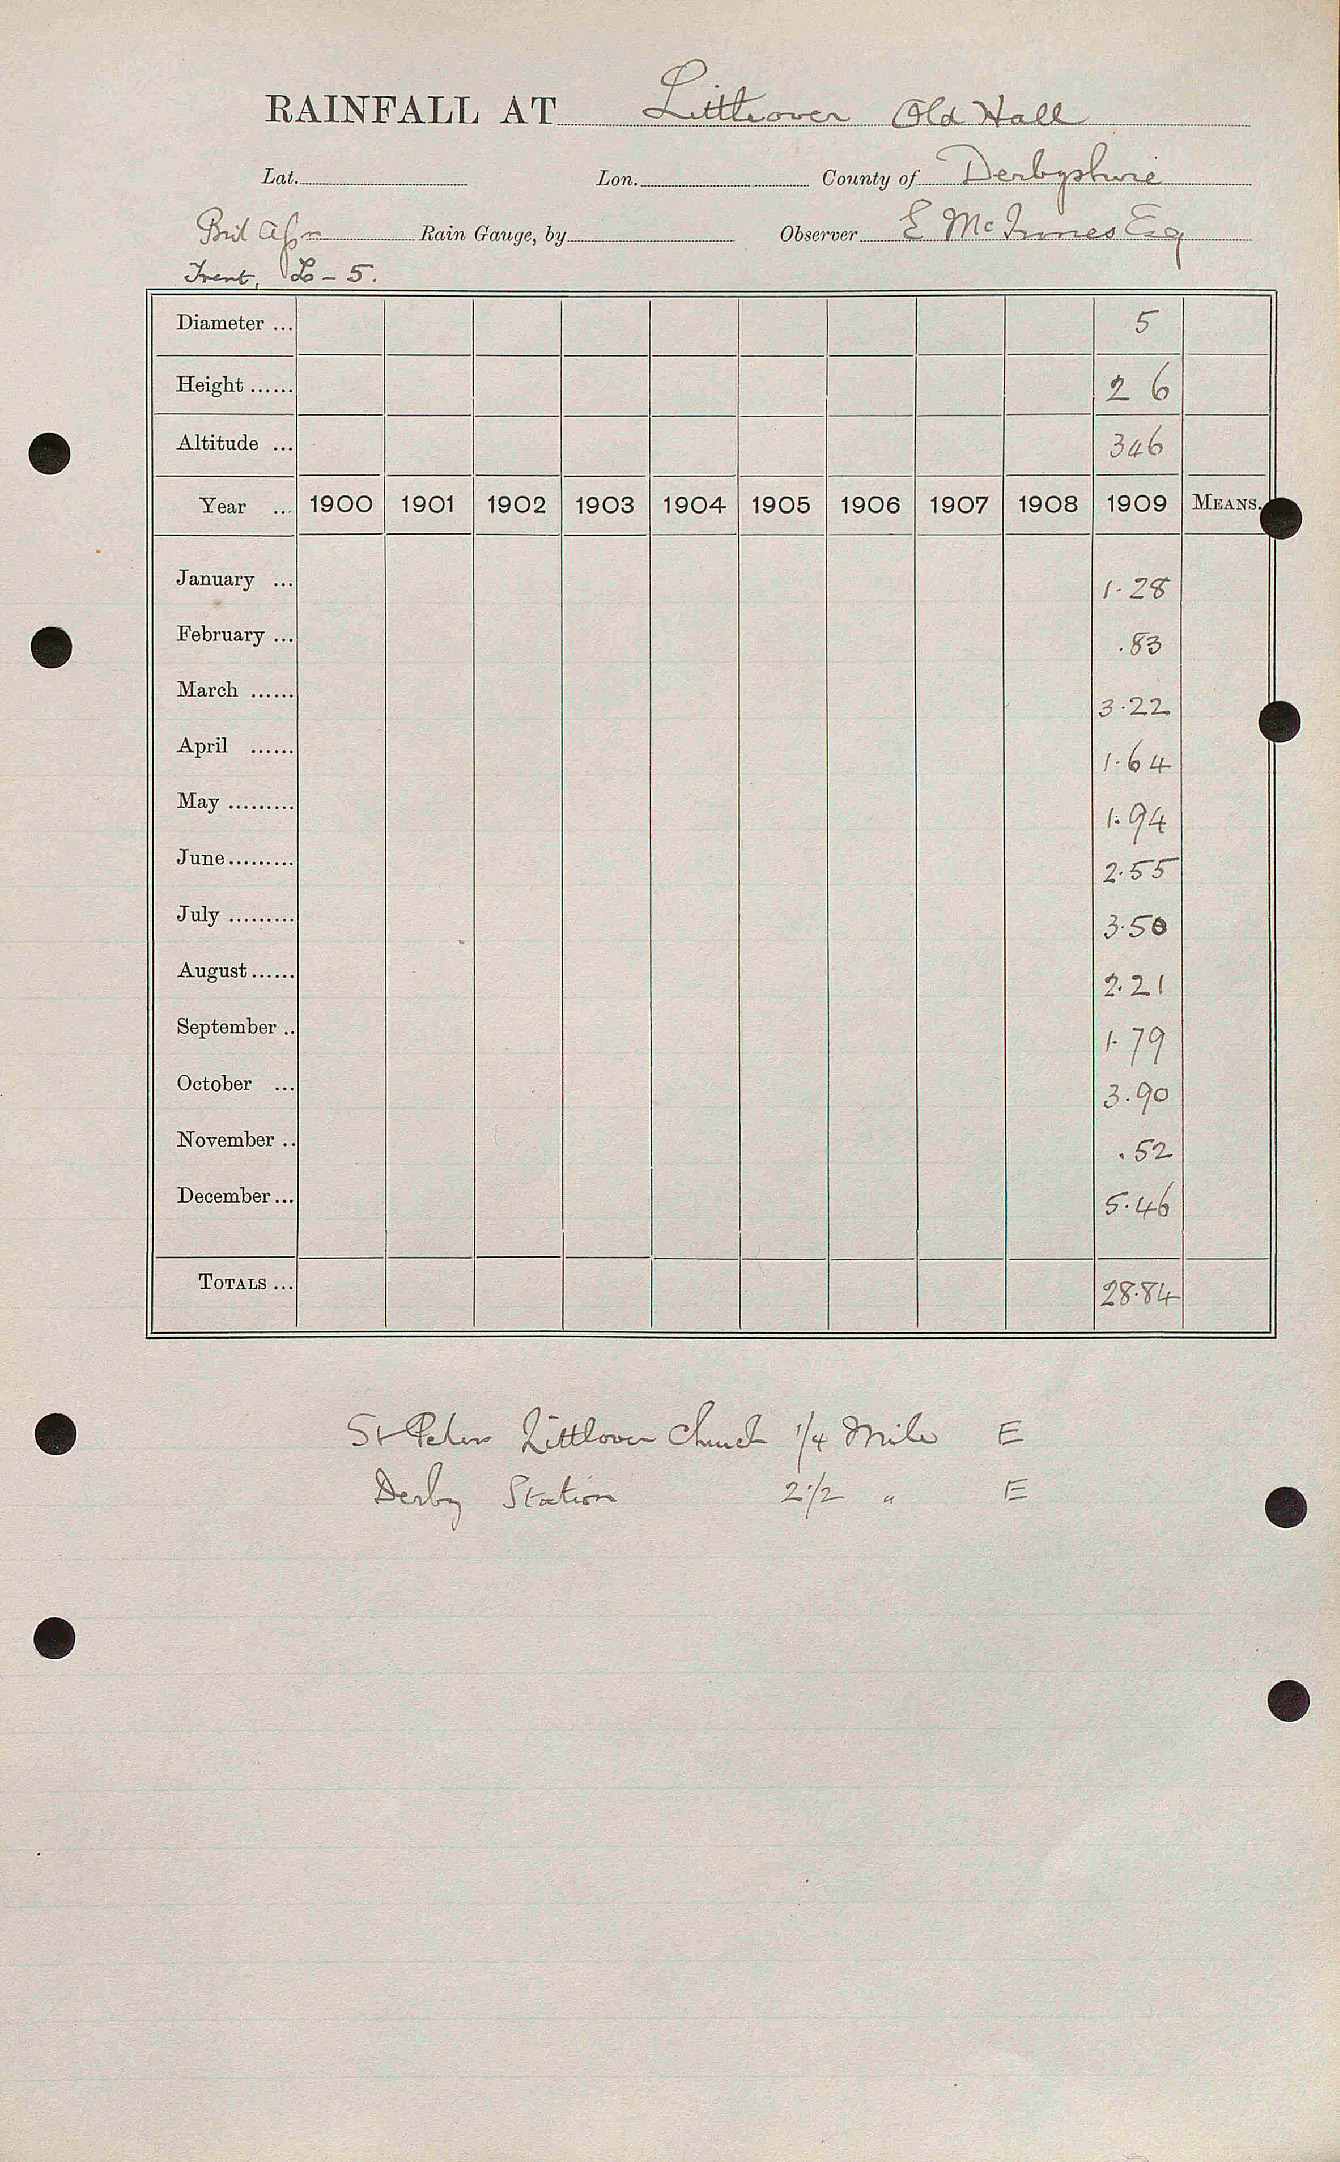 RAINFALL AT Littleover Old Hall
Lat. Lon. County of Derbyshire
Brit Assn Rain Gauge, by Observer E McInnes Esq
Trent, L - 5.
Diameter ... 5
Height ...... 2 6
Altitude ... 346
Year ... 1900 1901 1902 1903 1904 1905 1906 1907 1908 1909 MEANS.
January ... 1.28
February ... .83
March ...... 3.22
April ...... 1.64
May ......... 1.94
June ......... 2.55
July ......... 3.50
August ...... 2.21
September .. 1.79
October ... 3.90
November .. .52
December ... 5.46
TOTALS ... 28.84
St Peters Littlover Church 1/4 Mile E
Derby Station 2 1/2 " E